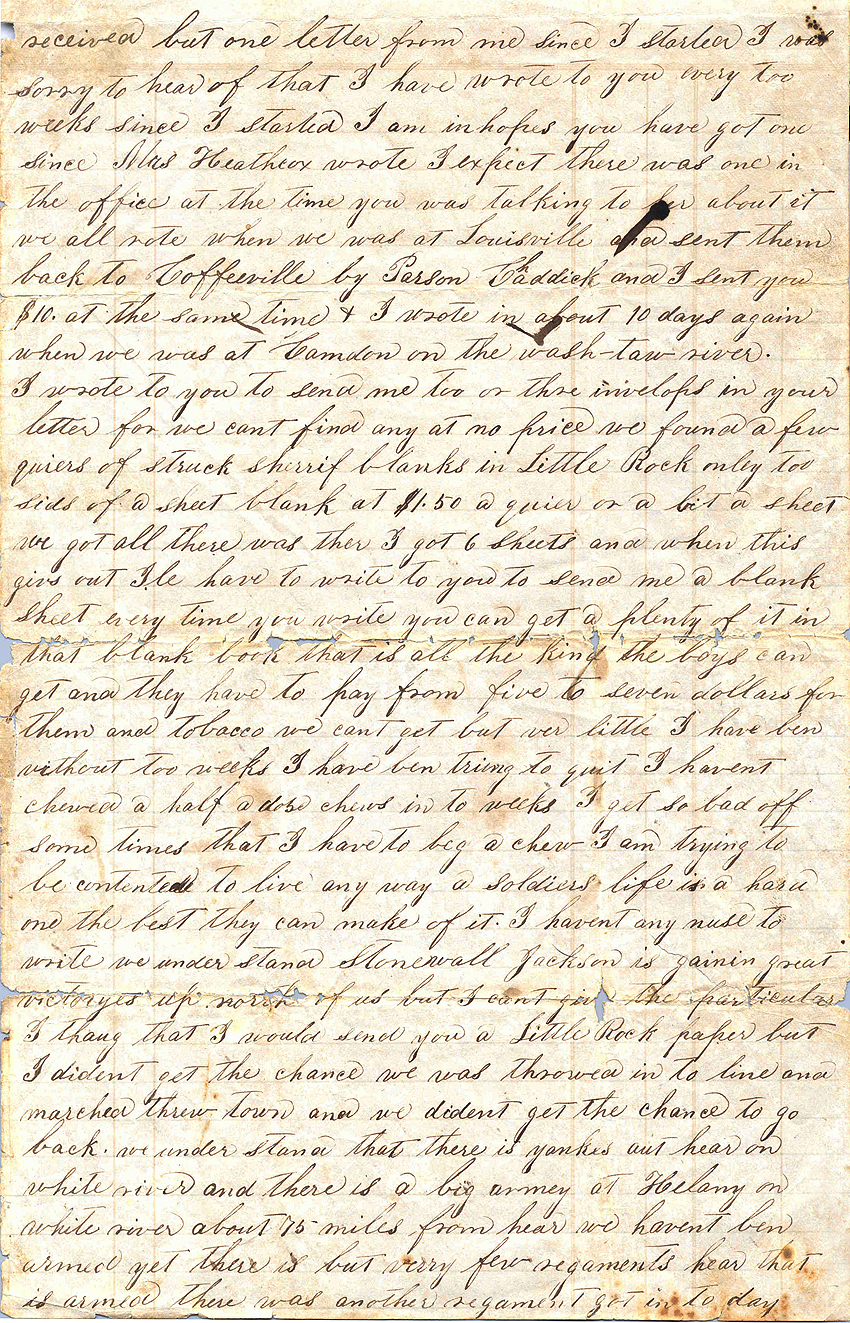 received but one letter from me since I started I was
sorry to hear of that I have wrote to you every too
weeks since I started I am in hopes you have got one
since Mrs Heathcox wrote I expect there was one in
the office at the time you was talking to her about it
we all rote when we was at Louisville and sent them
back to Coffeeville by Parson Caddick and I sent you
$10. at the same time & I wrote in about 10 days again
when we was at Camdon on the wash-taw river.
I wrote to you to send me too or thre invelops in your
letter for we cant find any at no price we found a few
quiers of struck sherrif blanks in Little Rock onley too
sids of a sheet blank at $1.50 a quier or a bit a sheet
we got all there was ther I got 6 sheets and when this
givs out Ile have to write to you to send me a blank
sheet every time you write you can get a plenty of it in
that blank book that is all the kind the boys can
get and they have to pay from five to seven dollars for
them and tobacco we cant get but ver little I have ben
without too weeks I have ben triing to quit I havent
chewed a half a dosd chews in to weeks I get so bad off
some times that I have to beg a chew I am trying to
be contented to live any way a soldiers life is a hard
one the best they can make of it. I havent any nuse to
write we under stand Stonewall Jackson is gainin great
victoryes up north of us but I cant giv the particulars
I thaug that I would send you a Little Rock paper but
I dident get the chance we was throwed in to line and
marched threw town and we dident get the chance to go
back. we under stand that there is yankes aut hear on
white river and there is a big armey at Helany on
white river about 75 miles from hear we havent ben
armed yet there is but verry few regaments hear that
is armed there was another regament got in to day